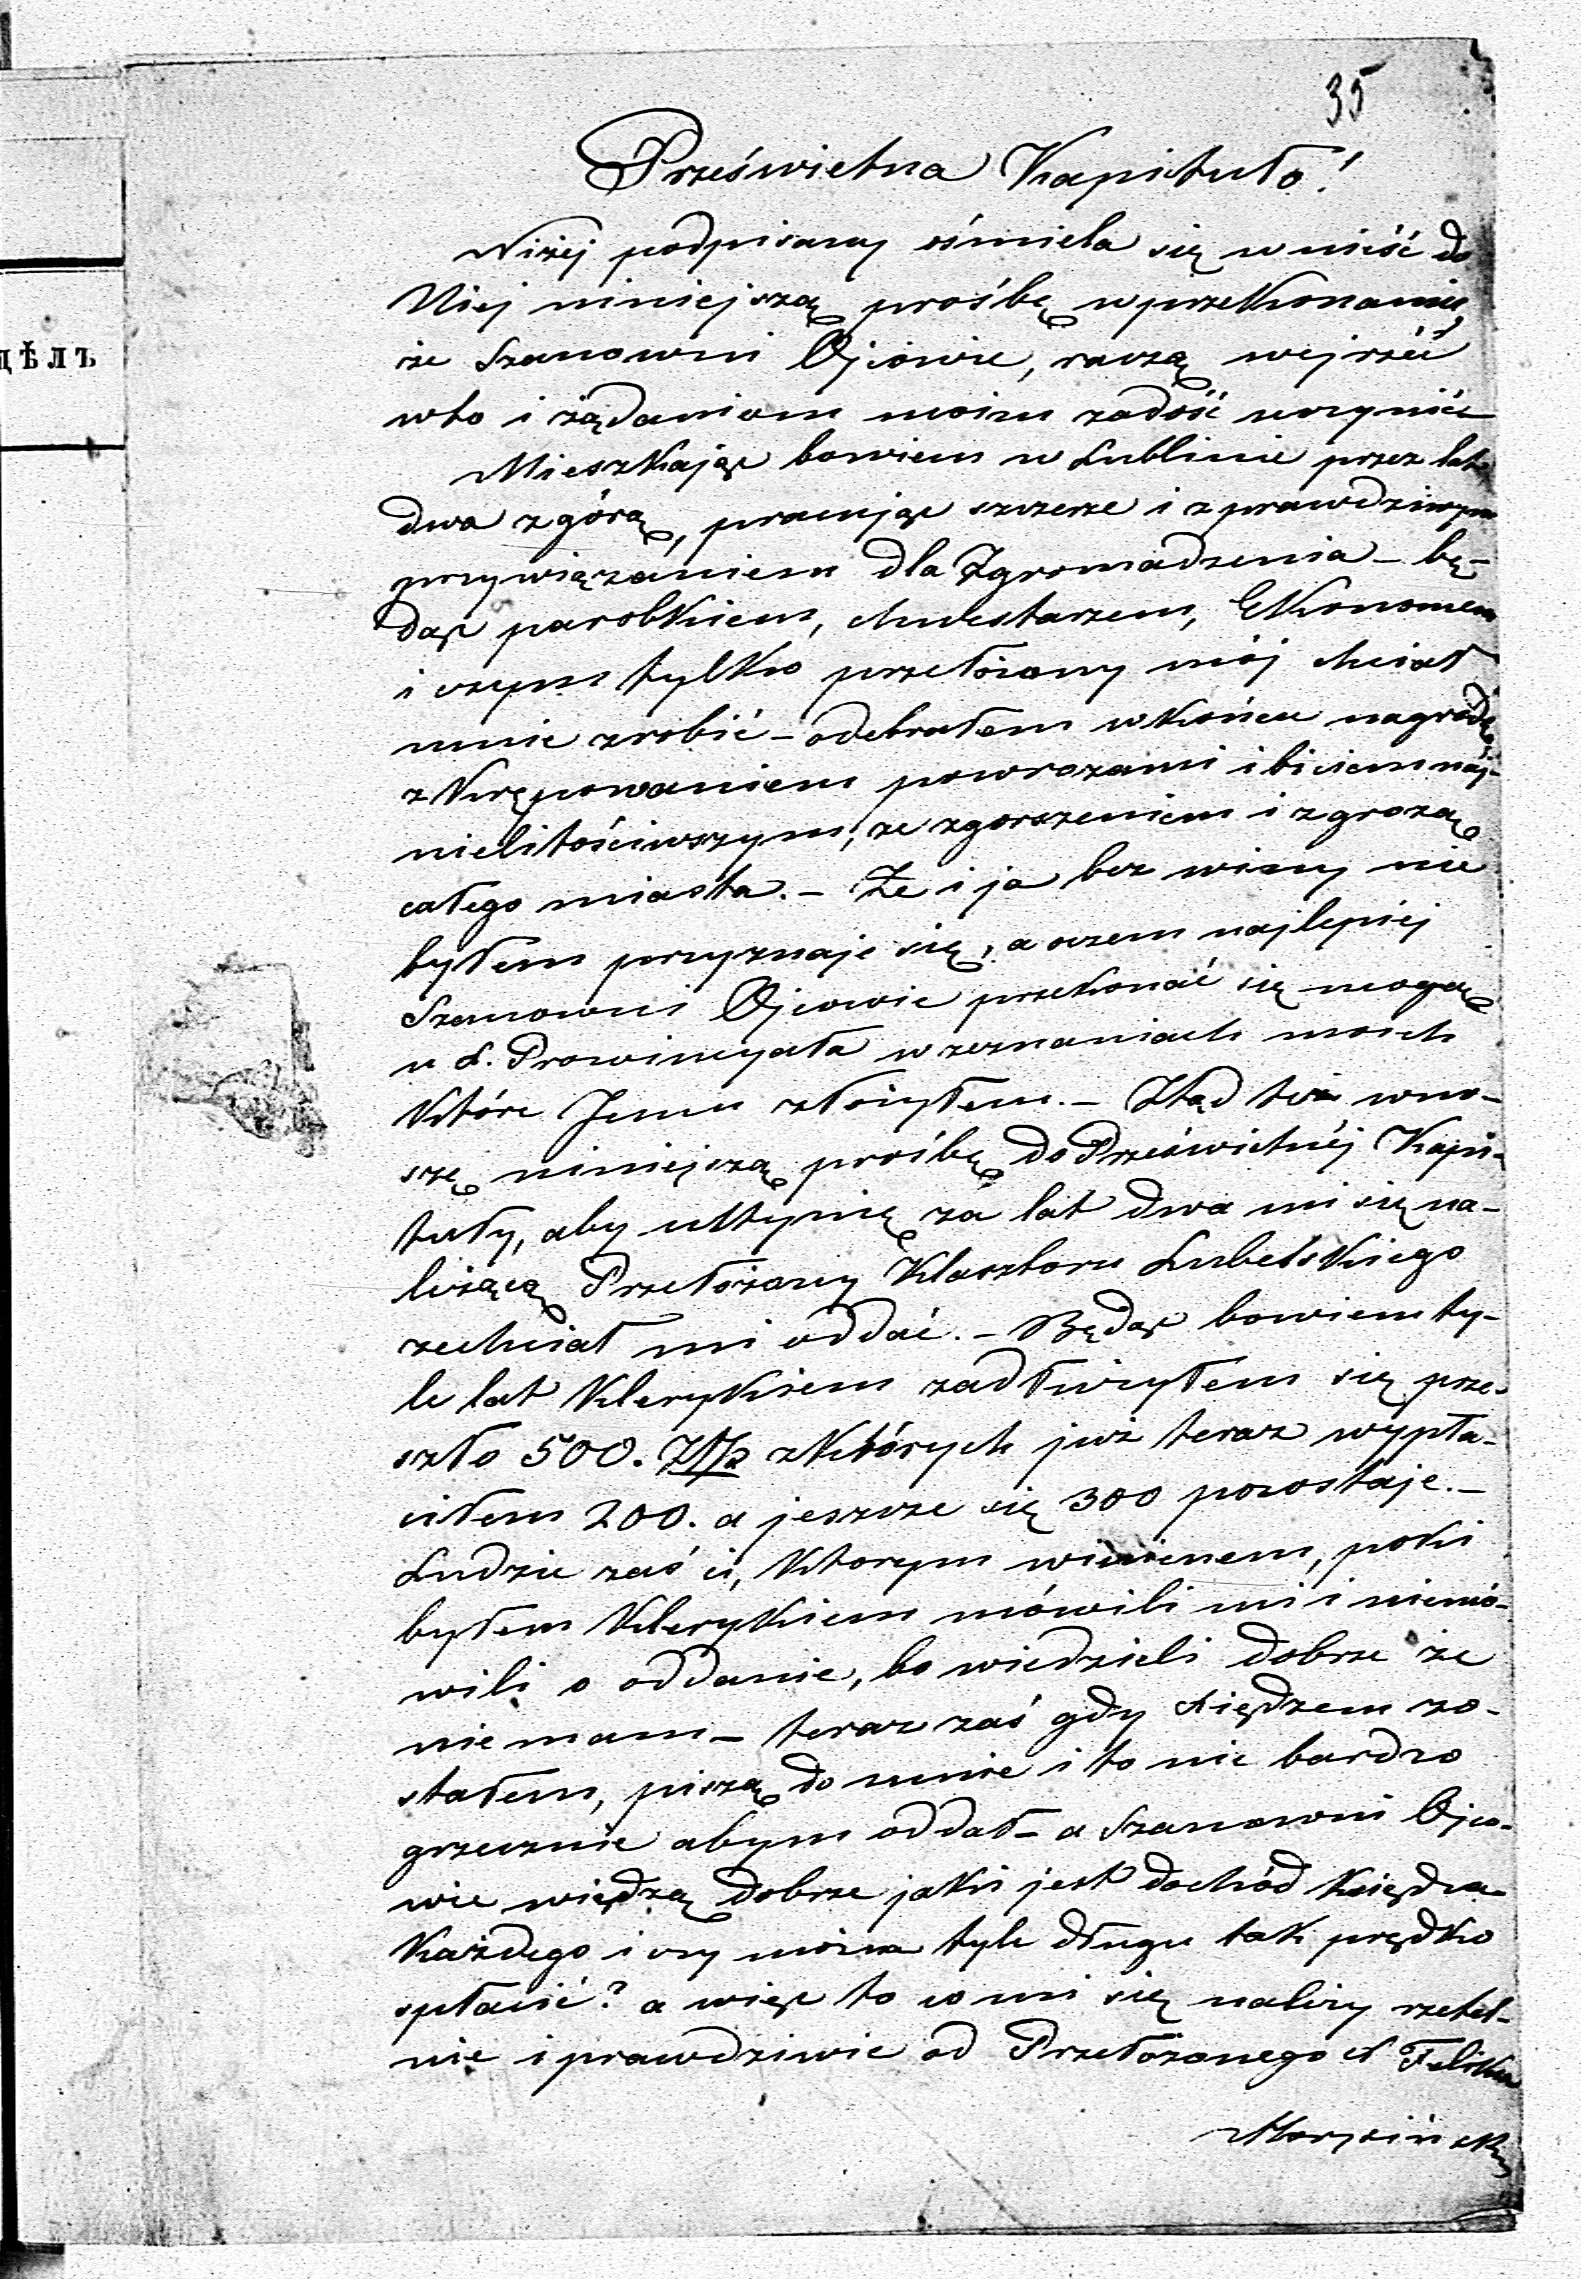 35
Prześwietna Kapituło!
Niżej podpisany ośmiela się wnieść do
Niej niniejszą prośbę w przekonaniu,
że Szanowni Ojcowie, raczą wejrzéć
wto i żądaniom moim zadość uczynić
Mieszkając bowiem w Lublinie przez lat
dwa zgórą, pracując szczerze i z prawdziwym
przywiązaniem dla Zgromadzenia – bę-
dąc parobkiem, chwestarzem, Ekonomem
i czym tylko przełożony mój chciał
mnie zrobić – odebrałem wkońcu nagrodę
z krępowaniem powrozami i biciem naj-
nielitościwszym, ze zgorszeniem i zgrozą
całego miasta. – Że i ja bez winy nie
byłem przyznaje się, a oczem najlepiéj
Szanowni Ojcowie przekonać się mogą
u X. Prowincyała w zeznaniach moich
które Jemu złożyłem. – Ztąd też wno-
szę niniejszą prośbę do Prześwietnéj Kapi-
tuły, aby ultynię za lat dwa mi się na-
leżącą Przełożony Klasztoru Lubelskiego
zechciał mi oddać. – Będąc bowiem ty-
le lat Klerykiem zadłużyłem się prze-
szło 500. Złp zktórych już teraz wypła-
ciłem 200. a jeszcze się 300 pozostaje. –
Ludzie zaś ci, ktorym winienem, poki
byłem Klerykiem mówili mi i niemó-
wili o oddanie, bo wiedzieli dobrze że
nie mam – teraz zaś gdy Xiędzem zo-
stałem, piszą do mnie i to nie bardzo
grzecznie abym oddał – a Szanowni Ojco-
wie wiedzą dobrze jaki jest dochód Księdza
każdego i czy można tyle długu tak prędko
spłacić? a więc to co mi się należy rzetel-
nie i prawdziwie od Przełożonego X Felixa
ДѢЛЪ